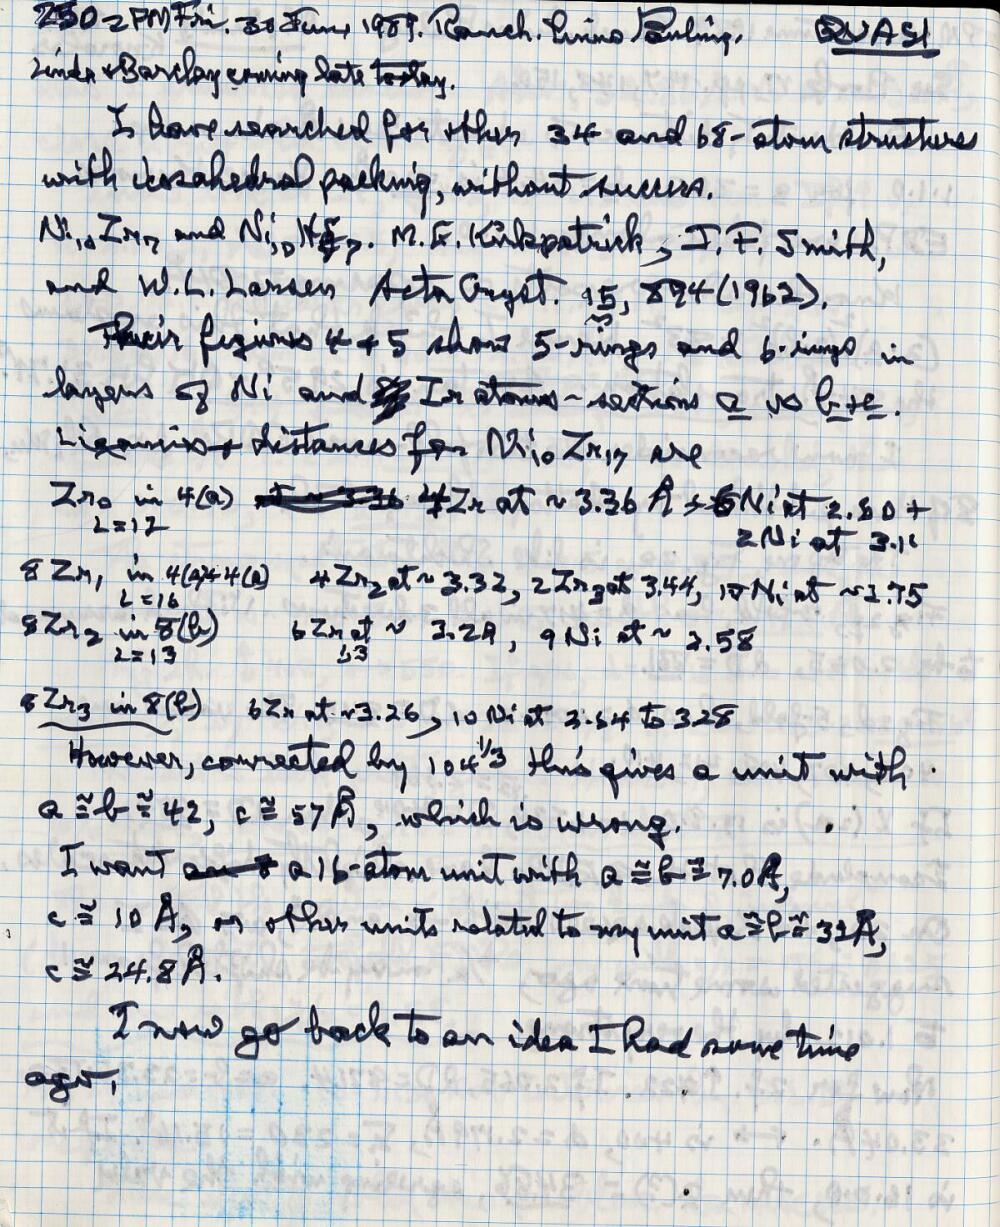 250 2PM Fri. 30 June, 1989. Ranch. Linus Pauling. QUASI
Linda + Barclay coming late today.
I have searched for other 34 and 68-atom structures
with icosahedral packing, without success.
Ni10Zr7 and Ni10Hf7. M.E. Kirkpatrick, J.F. Smith,
and W.L. Larsen Acta Cryst. 15, 894 (1962).
Their figures 4 + 5 show 5-rings and 6-rings in
layers of Ni and Zr atoms - sections a vs b + c.
Ligancies + distances for Ni10Zr7 are
Zr0 in 4(a) 4Zr at ~3.36 Å + 6Ni at 2.60 +
L=12 2Ni at 3.1
8 Zr1 in 4(a)+4(a) 4Zr2 at ~3.32, 2Zr3 at 3.44, 10Ni at ~2.75
L=16
8Zr2 in 8(b) 6Zr at ~ 3.29, 9Ni at ~ 2.58
L=13
8Zr3 in 8(b) 6Zr at ~3.26, 10Ni at 2.64 to 3.28
However, corrected by 104^1/3 this gives a unit with
a ≅ b ≅ 42, c ≅ 57 Å, which is wrong.
I want a 16-atom unit with a ≅ b ≅ 7.0 Å,
c ≅ 10 Å, or other units related to my unit a ≅ b ≅ 32 Å,
c ≅ 24.8 Å.
I now go back to an idea I had some time
ago.